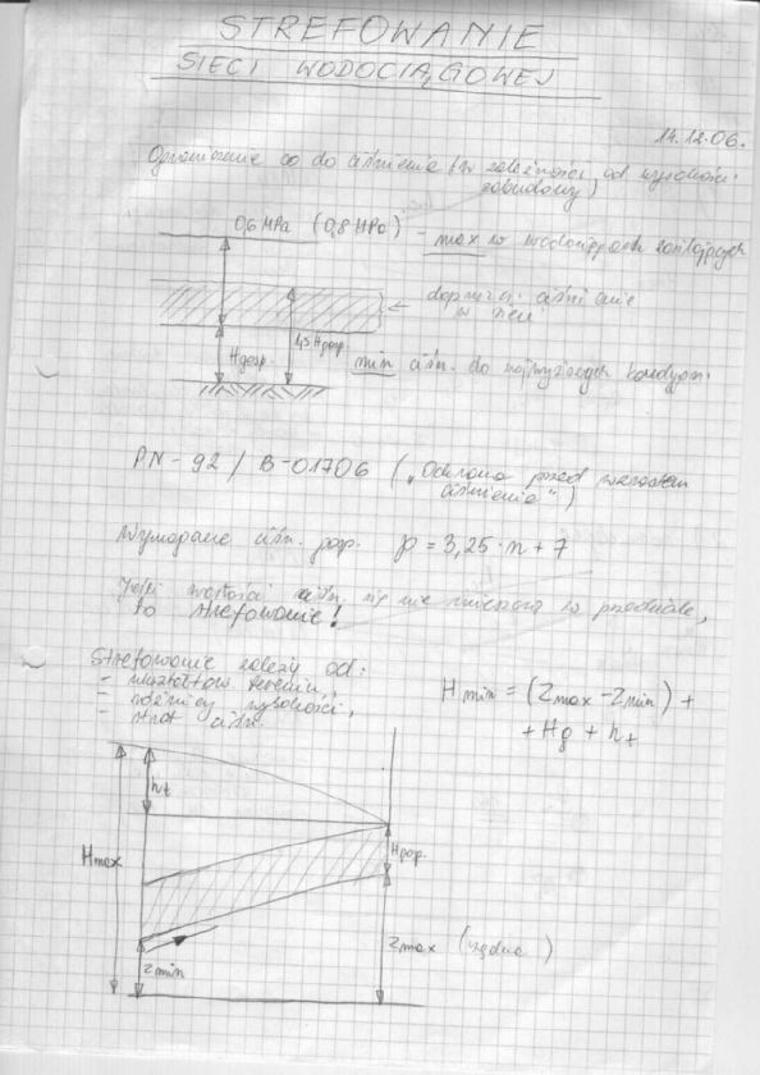 STREFOWANIE
SIECI WODOCIĄGOWEJ
14.12.06.
Ograniczenie co do ciśnienia (w zależności od wysokości
zabudowy)
0,6 MPa (0,8 MPa) - max w wodociągach zasilających
ciśnienie
w sieci
Hgosp. 1,5 Hgosp. min ciśn. do najwyższych kondygn.
PN-92/B-01706 ("Ochrona przed wzrostem
ciśnienia")
Wymagane ciśn. gosp. p = 3,25·n + 7
Jeśli wartości ciśn. się nie mieszczą w przedziale,
to strefowanie!
Strefowanie zależy od:
- kształtów terenu,
- różnicy wysokości,
- strat ciśn.
H min = (Zmax - Zmin) +
+ Hg + ht
ht
Hmax
Hgosp.
Zmax (rzędna )
zmin